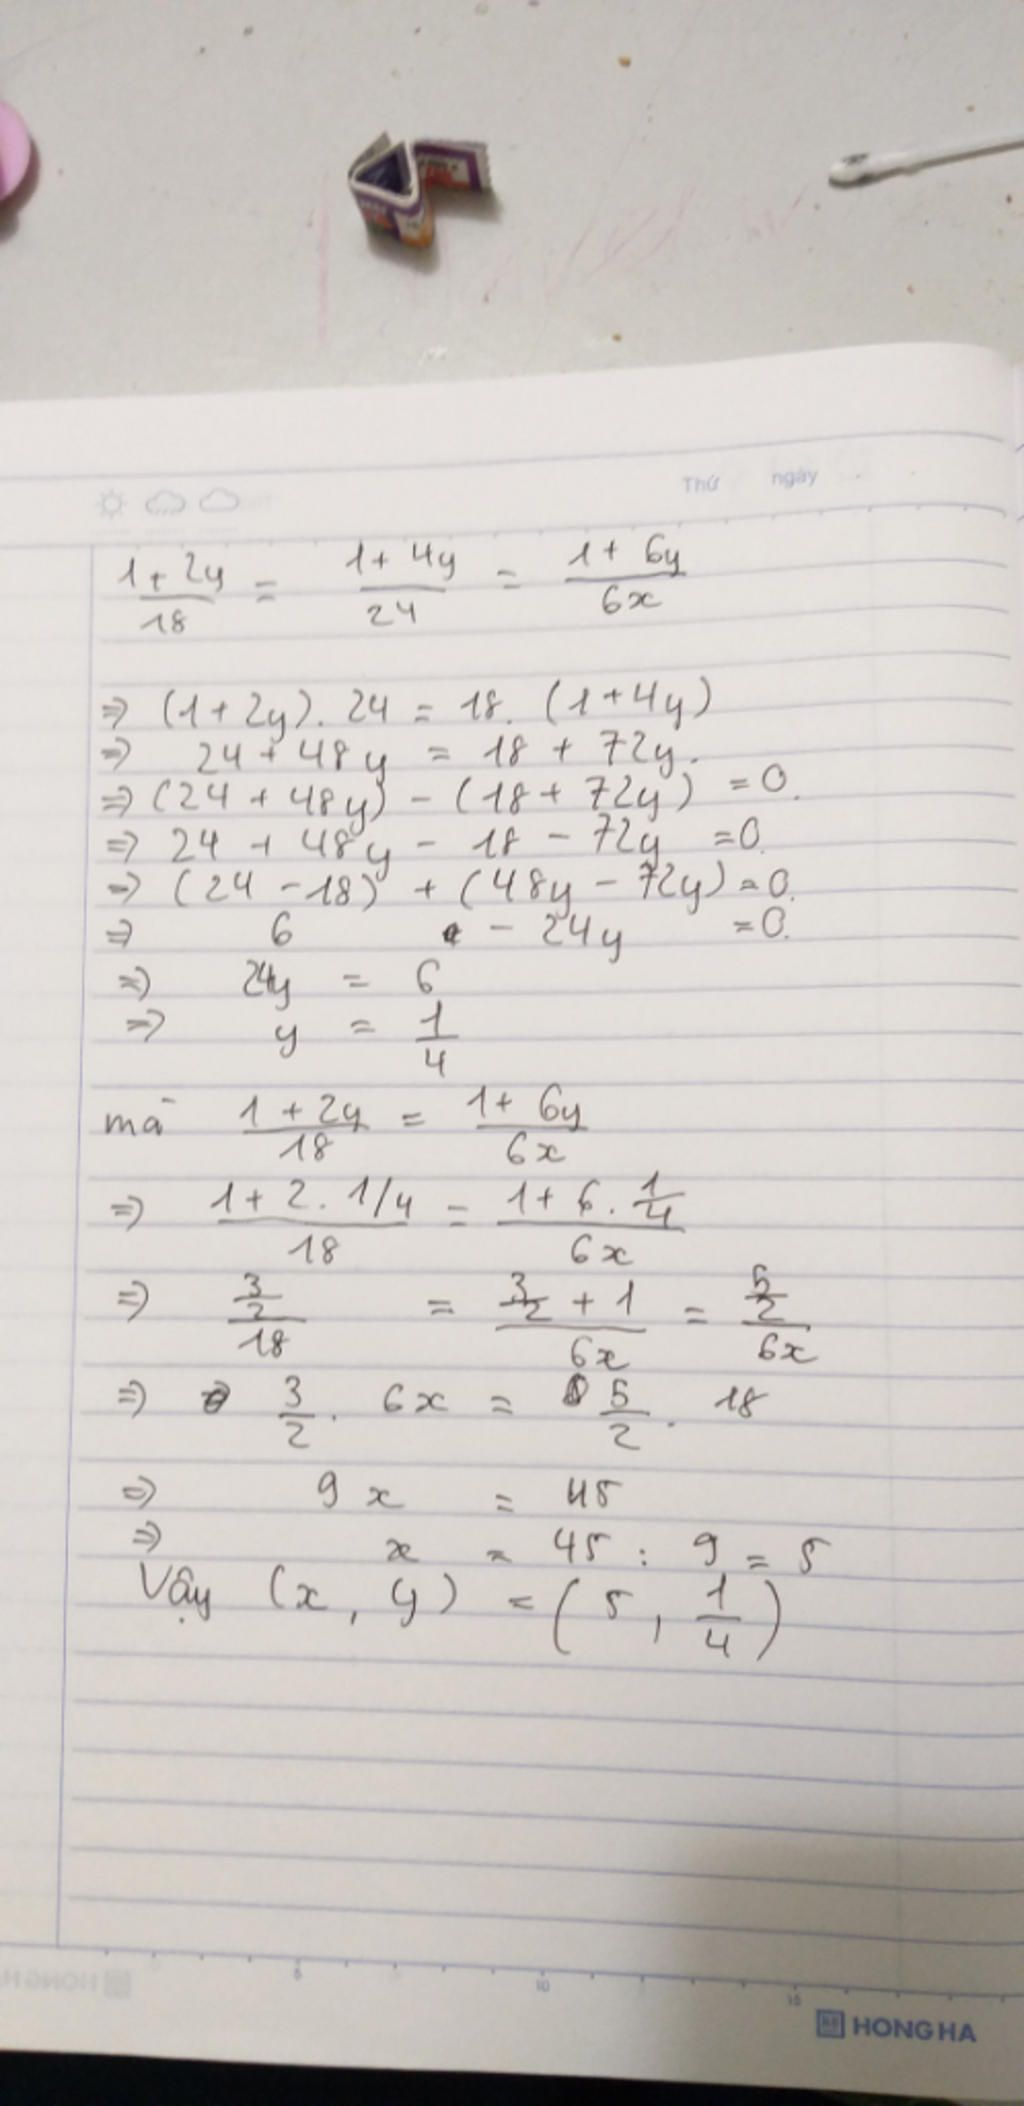 Thứ ngày
1 + 2y / 18 = 1 + 4y / 24 = 1 + 6y / 6x
=> (1 + 2y) . 24 = 18 . (1 + 4y)
=> 24 + 48y = 18 + 72y.
=> (24 + 48y) - (18 + 72y) = 0.
=> 24 + 48y - 18 - 72y = 0.
=> (24 - 18) + (48y - 72y) = 0.
=> 6 - 24y = 0.
=> 24y = 6
=> y = 1/4
mà 1 + 2y / 18 = 1 + 6y / 6x
=> 1 + 2 . 1/4 / 18 = 1 + 6 . 1/4 / 6x
=> 3/2 / 18 = 3/2 + 1 / 6x = 5/2 / 6x
=> 3/2 . 6x = 5/2 . 18
=> 9x = 45
=> x = 45 : 9 = 5
Vậy (x, y) = (5, 1/4)
5 10 15
HONG HA